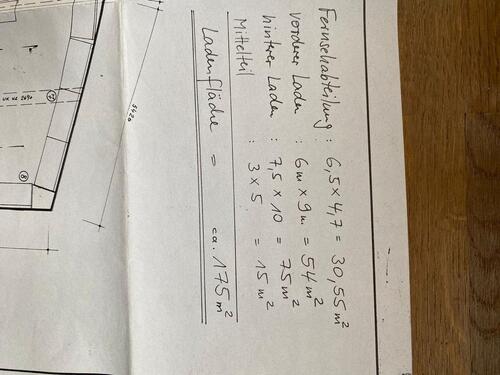 Fernsehabteilung : 6,5 x 4,7 = 30,55 m²
vorderer Laden : 6m x 9m. = 54 m²
hinterer Laden : 7,5 x 10 = 75 m²
Mittelteil : 3 x 5 = 15 m²
Ladenfläche = ca. 175 m²
5420
8